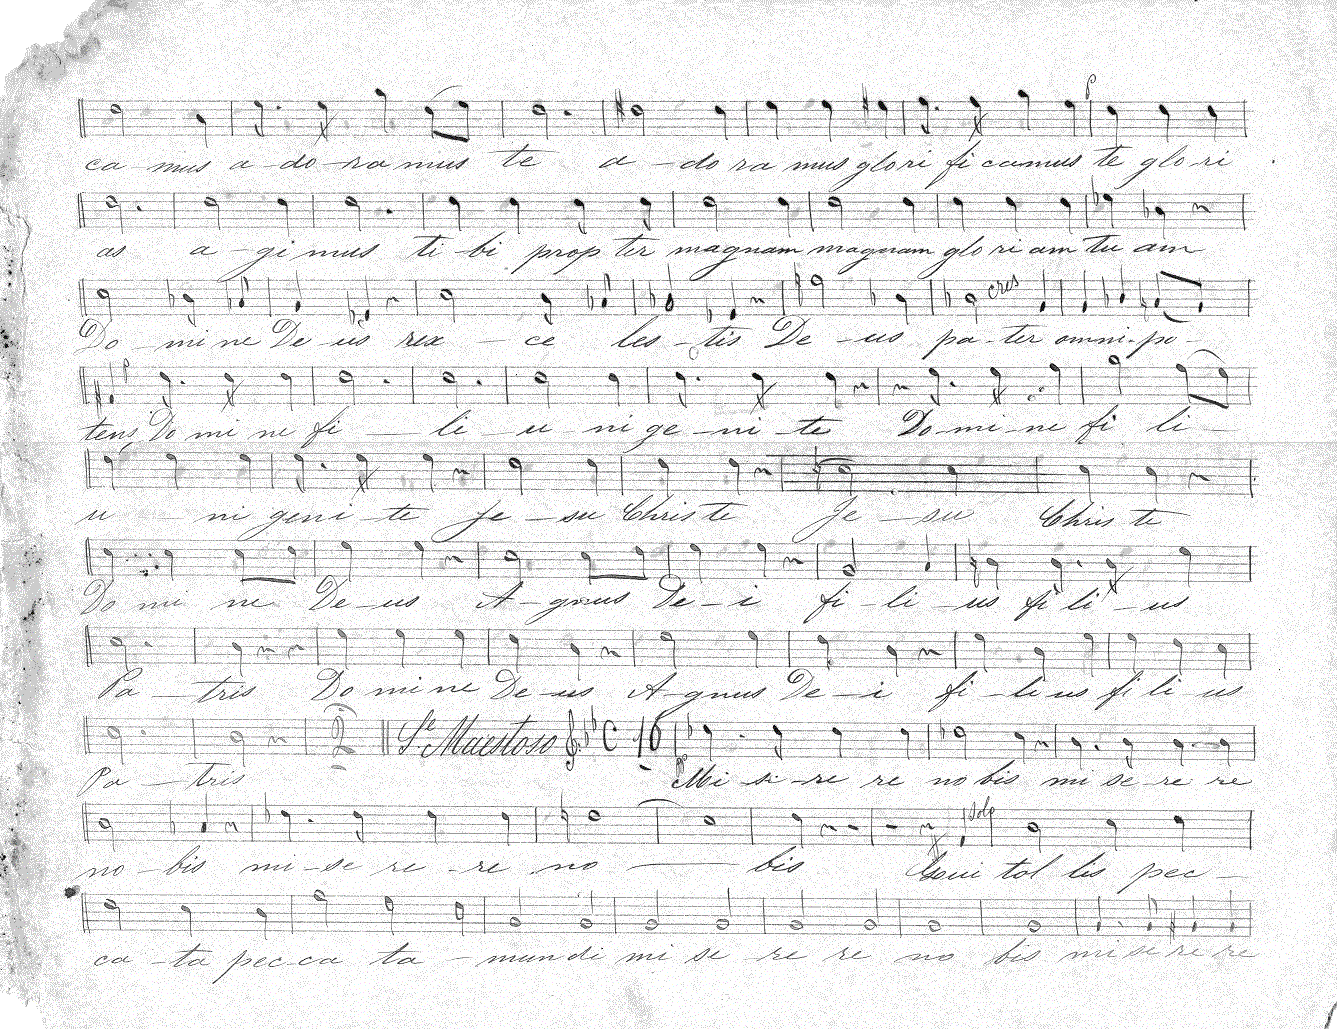 p
ca - mus a - do - ra mus te a - do ra mus glo ri fi camus te glo ri
as a - gi mus ti - bi prop ter magnam magnam glo ri am tu am
cres
Do - mi ne De - us rex - ce les - tis De - us pa - ter omni - po -
p
tens, Do mi ne fi - li - u - ni ge - ni - te Do - mi - ne fi li -
u - ni geni - te Je - su Chris te Je - su Chris te
Do mi ne De - us A - gnus De - i fi - li - us fi li - us
Pa - tris Do mi ne De - us A - gnus De - i fi - li us fi li us
2 Maestoso C 16
Pa - tris Mi - se - re re no bis mi se - re re
Solo
no - bis mi - se re - re no - bis Qui tol lis pec -
ca - ta pec - ca ta - mun di mi se - re re no bis mi se re re